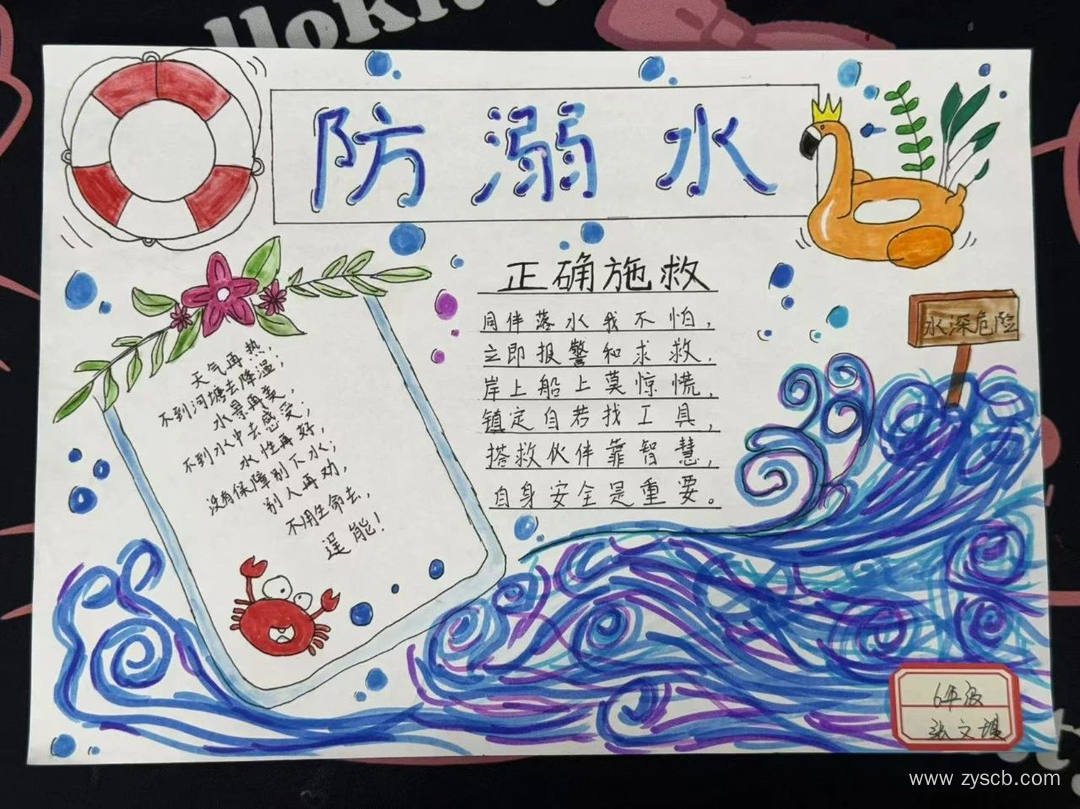 防溺水
天气再热,
不到河塘去降温;
水景再美,
不到水中去感受;
水性再好,
没有保障别下水;
别人再劝,
不用生命去,
逞能!
正确施救
同伴落水我不怕,
立即报警和求救.
岸上船上莫惊慌.
镇定自若找工具,
搭救伙伴靠智慧,
自身安全是重要。
水深危险
6年级
张文
www.zyscb.com